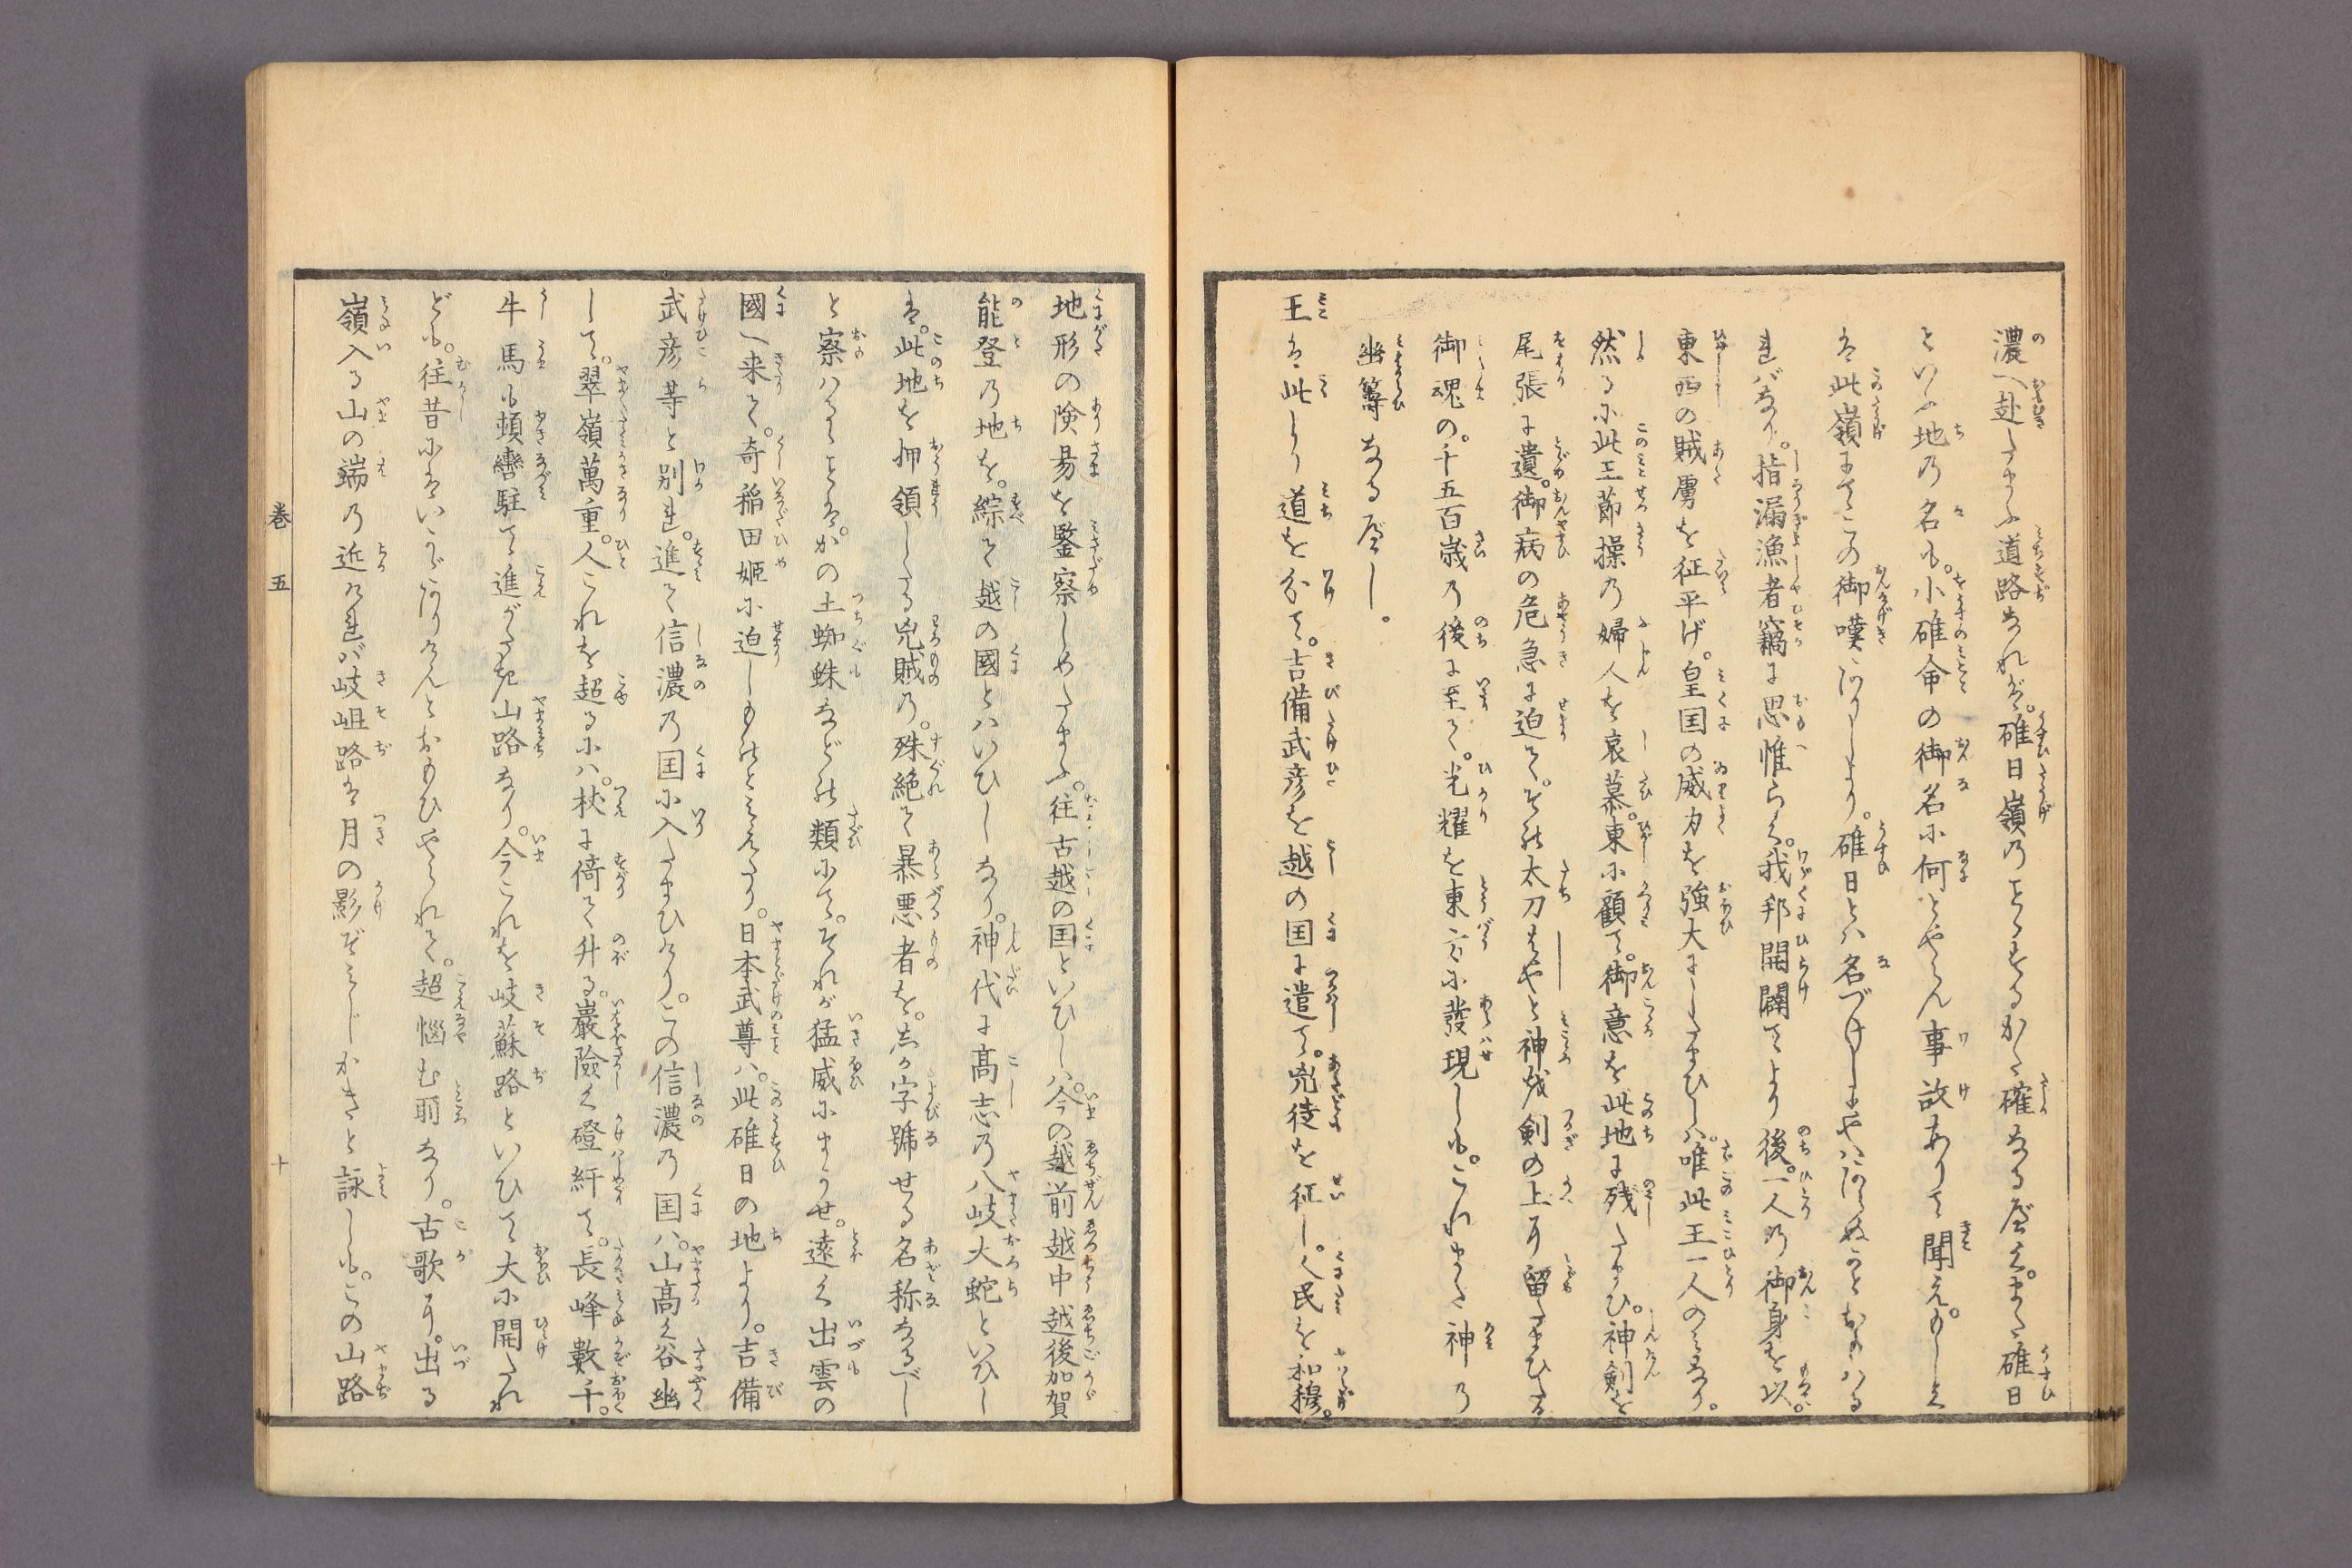 濃へ赴たまふ道路なれば。碓日嶺のことなるかた確なる歟。また碓日
といふ地の名も。小碓命の御名に何とやらん事故ありて聞え。もしく
は此嶺にてこの御嘆ありしより。碓日とは名づけしにやはあらぬかとおもはる
ればなり。指漏漁者竊に思惟らく。我邦開闢てより後。一人の御身を以。
東西の賊虜を征平げ。皇国の威力を強大にしたまひしは。唯此王一人のみなり。
然るに此王節操の婦人を哀慕。東に顧て。御意を此地に残したまひ。神剣を
尾張に遺。御病の危急に迫て。その太刀はやと神성剣の上に留たまひたる
御魂の。千五百歳の後に至て。光耀を東方に發現しも。これまた神の
幽籌なる歟し。
王は此より道を分て。吉備武彦を越の国に遣て。兇徒を征し。人民を和穆。
地形の険易を鑒察しめたまふ。往古越の国といひしは。今の越前越中越後加賀
能登の地を。綜て越の國とはいひしなり。神代に高志の八岐大蛇といひし
は。此地を押領したる兇賊の。殊絶て暴悪者を。しか字號せる名称なるべし
と察はるゝことは。かの土蜘蛛などの類にて。それが猛威にまかせ。遠く出雲の
國へ来て。奇稲田姫に迫しものとみえたり。日本武尊は。此碓日の地より。吉備
武彦等と別れ。進て信濃の国に入たまひけり。この信濃の国は。山高く谷幽
して。翠嶺萬重。人これを超るには。杖に倚て升る。巌險く磴紆て。長峰數千。
牛馬も頓轡駐て進がたき山路なり。今これを岐蘇路といひて大に開たれ
ども。往昔にはいかばかりけんとおもひやられて。超惱む所なり。古歌に。出る
嶺入る山の端の近ければ岐岨路は月の影ぞみじかきと詠しも。この山路
巻五
十